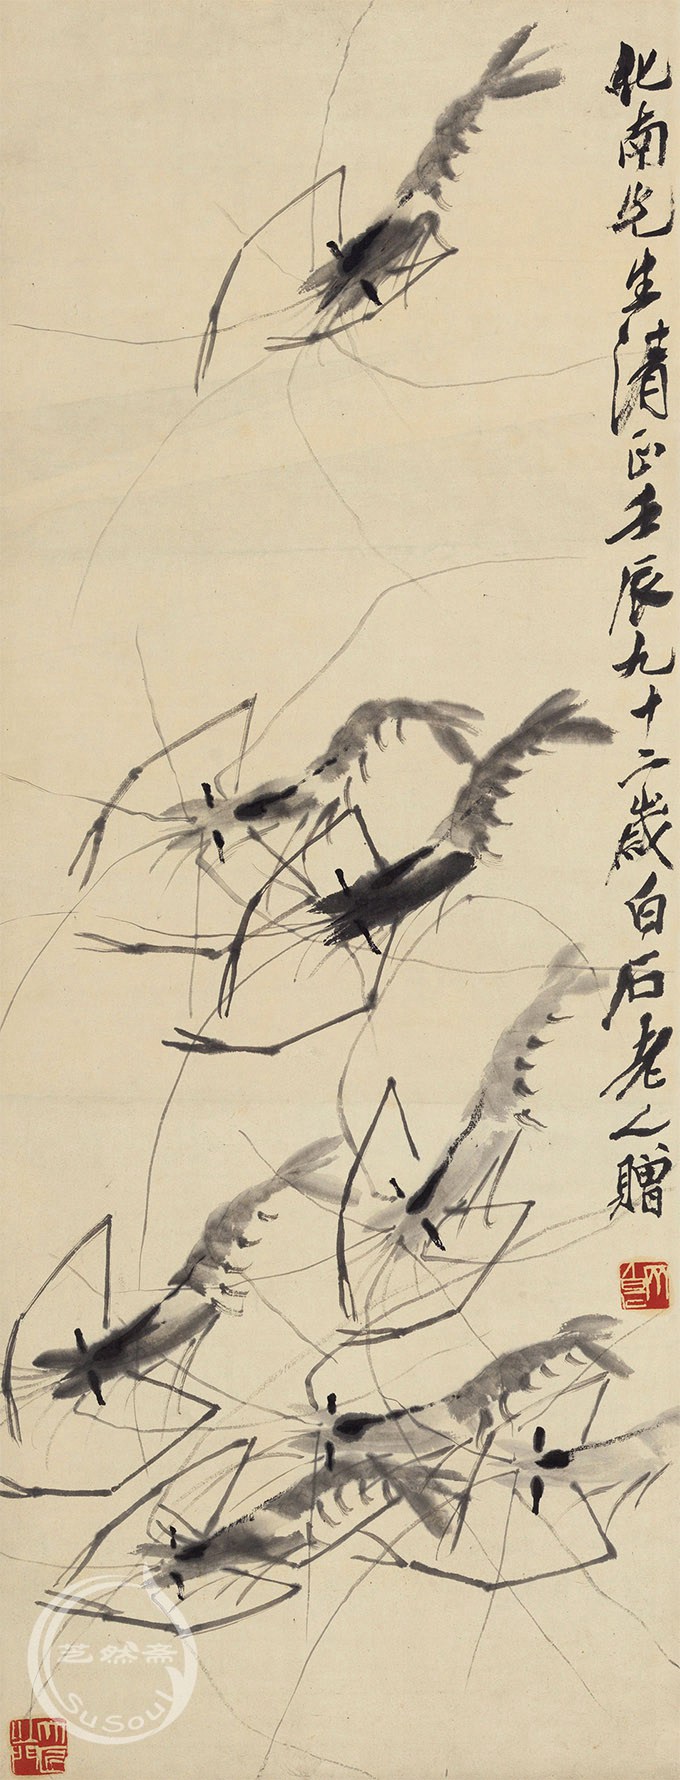 化南先生清正壬辰九十二歲白石老人贈
芝然斋
SuSoul